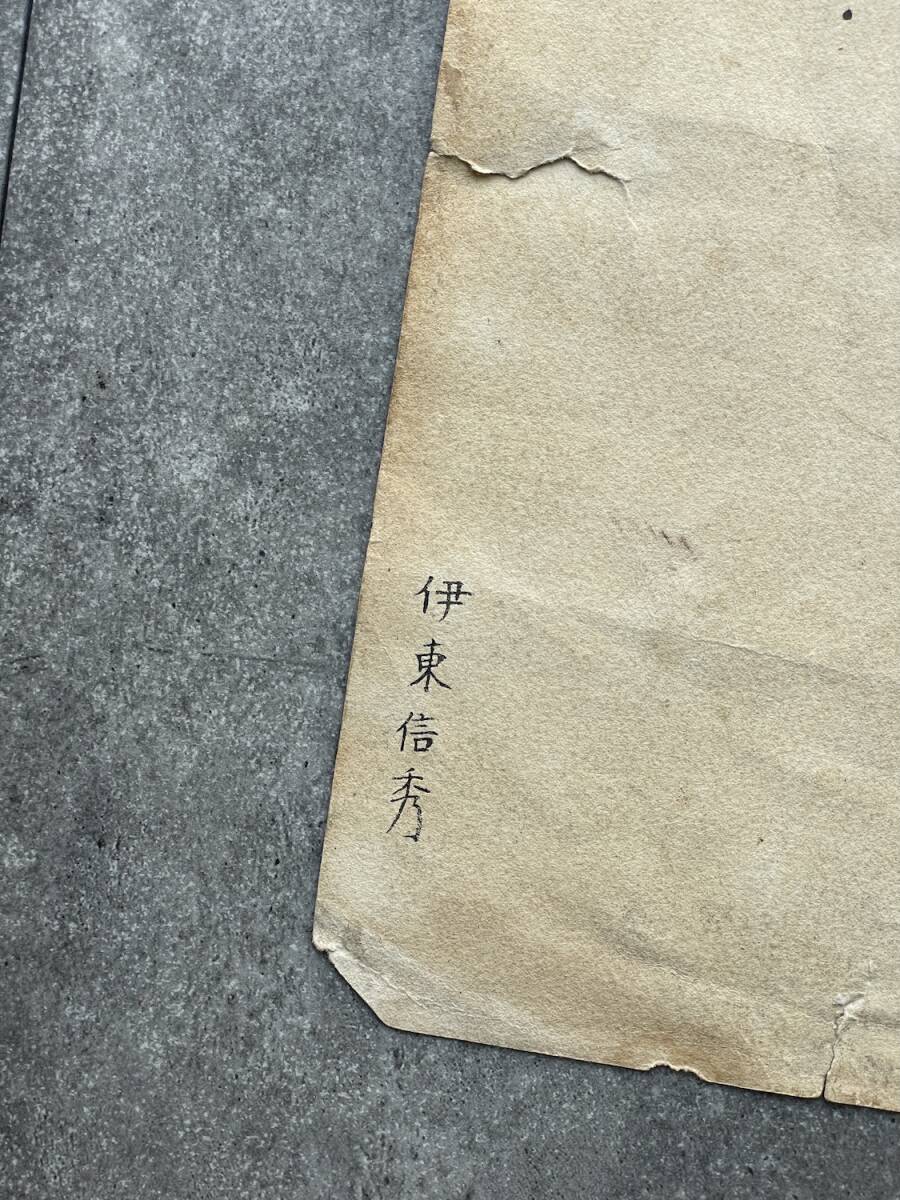 伊東信秀